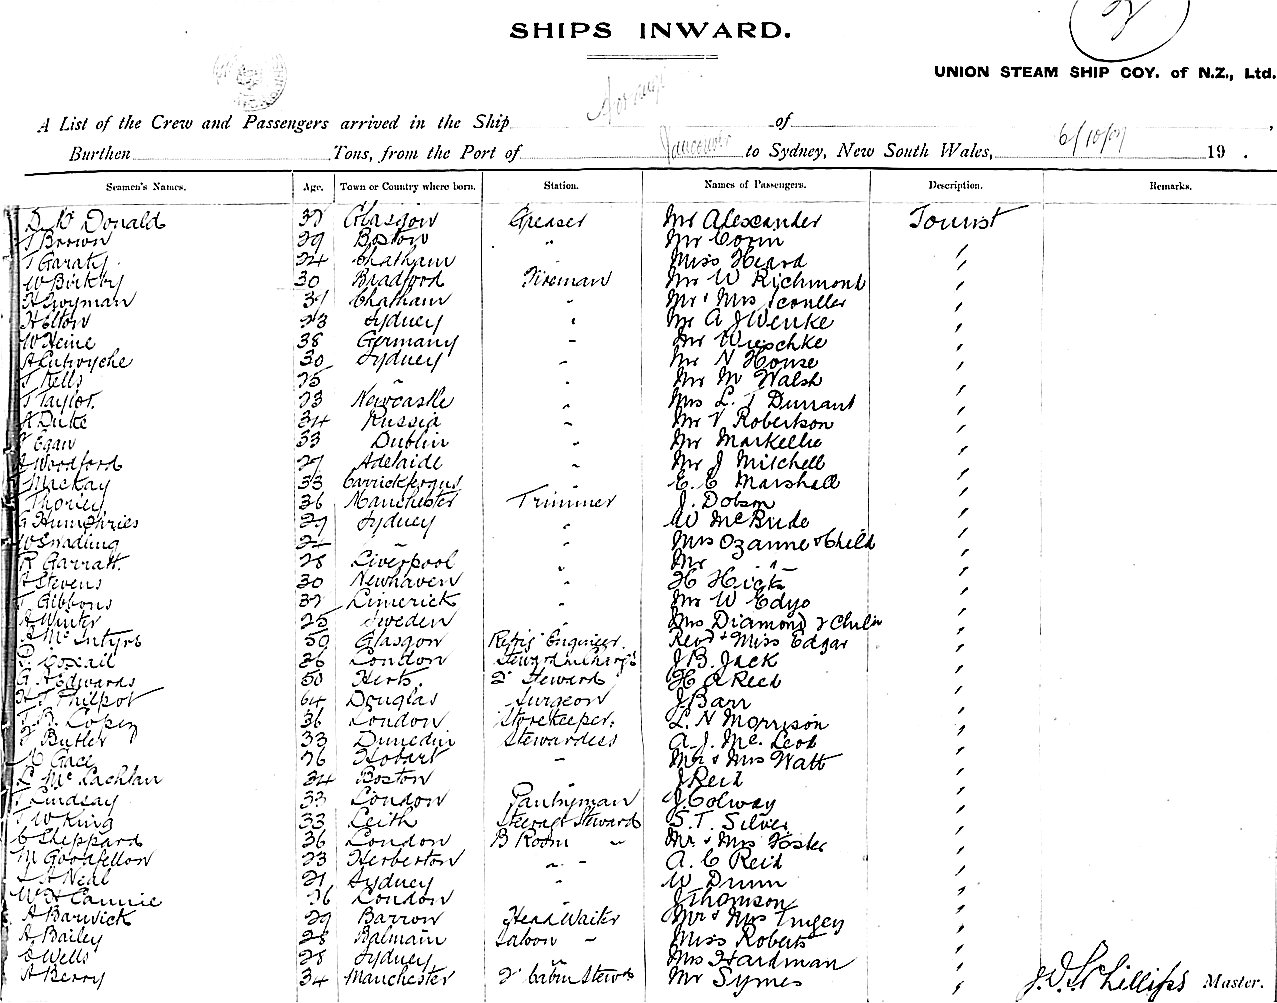 SHIPS INWARD.
UNION STEAM SHIP COY. of N.Z., Ltd.
A List of the Crew and Passengers arrived in the Ship Aorangi of ,
Burthen Tons, from the Port of Vancouver to Sydney, New South Wales, 6/10/07 19 .
Seamen's Names. Age. Town or Country where born. Station. Names of Passengers. Description. Remarks.
D Mc Donald 37 Glasgow Greaser Mr Alexander Tourist
T Brown 29 Boston " Mr Corin "
T Garaty 24 Chatham " Miss Heard "
W Birkby 30 Bradford Fireman Mr W Richmond "
H Swyman 37 Chatham " Mr & Mrs Sconller "
H Elton 23 Sydney " Mr A J Wenke "
W Heine 38 Germany " Mr Wieschke "
A Lutwyche 30 Sydney " Mr N House "
T Kells 25 " " Mr M Walsh "
T Taylor. 23 Newcastle " Mrs L. T Durrant "
A Duke 34 Russia " Mr V Robertson "
Egan 33 Dublin " Mr Markellie "
Woodford 27 Adelaide " Mr J Mitchell "
Mackay 33 Carrickfergus " E. C Marshall "
Thorley 36 Manchester Trimmer J. Dobson "
G Humphries 27 Sydney " W McBride "
W Snading 22 " " Mrs Ozanne & Child "
R Garratt. 28 Liverpool " Mr " "
A Stevens 30 Newhaven " H Hick "
T Gibbons 37 Limerick " Mr W Edyo "
A Winter 25 Sweden Mrs Diamond & Child "
Mc Intyre 59 Glasgow Refrig Engineer. Revd & Miss Edgar "
Coxail 26 London Steward in charge J B. Jack "
G. H Edwards 50 Herts. 2d Steward H A Reed "
H J Philpot 64 Douglas Surgeon J Barr "
T. R. Lopez 36 London Storekeeper. L. N Morryson "
Butler 33 Dunedin Stewardess A. J. Mc. Leod "
M Gace 26 Hobart " Mr & Mrs Watt "
L Mc Lachlan 34 Boston J Reid "
T Lindsay 33 London Pantryman J. Colway "
T W King 33 Leith Steerage Steward S. T. Silver "
C Sheppard 36 London B Room " Mr & Mrs Foster "
M Goodfellow 23 Herberton " " A. C Reid "
A Neal 21 Sydney " W Drum "
W H Cannie 26 London " J Thomson "
A Barwick 29 Barrow Head Waiter Mr & Mrs Tingey "
A Bailey 28 Balmain Saloon " Miss Roberts "
S Wells 28 Sydney " Mrs Hardman "
A Berry 34 Manchester 2d Cabin Stewd Mr Symes "
J. D. S. Phillips Master.